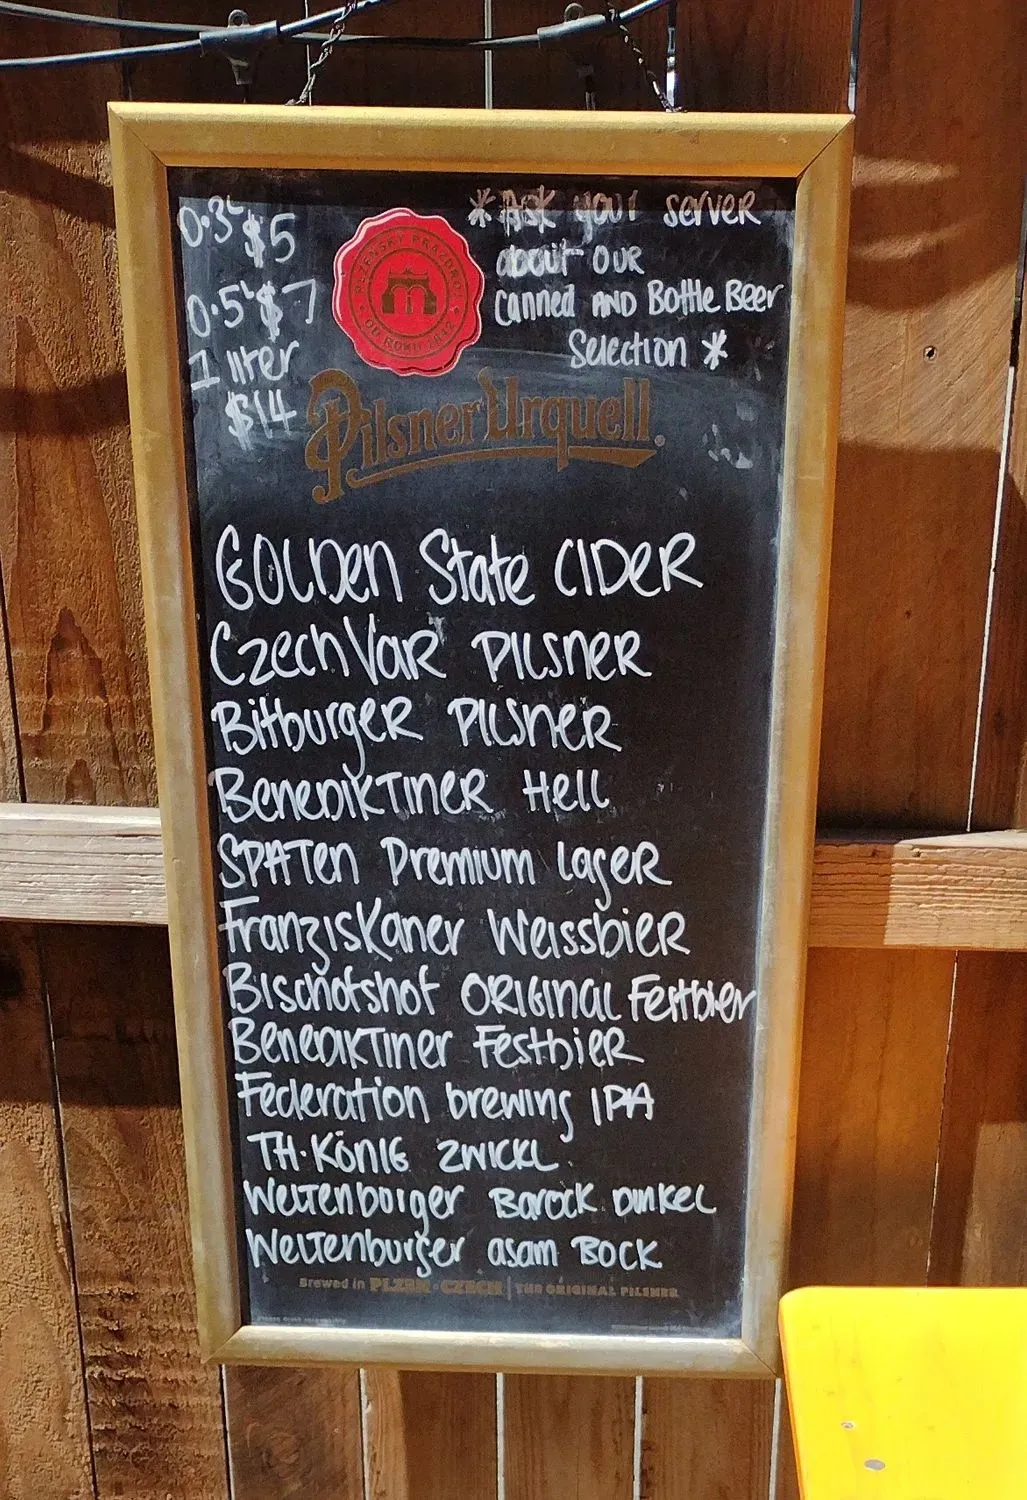 0.3L $5
0.5L $7
1 liter
$14
PLZEŇSKÝ PRAZDROJ
OD ROKU 1842
*Ask your server
about our
canned AND Bottle Beer
Selection *
Pilsner Urquell
GOLDen State CIDER
CzechVar PILSNER
Bitburger PILSNER
BeneDikTiner Hell
SPATen Premium lager
Franziskaner Weissbier
Bischofshof ORIGINAL Festbier
BeneDikTiner Festbier
Federation brewing IPA
TH. König ZWICKL
Weltenburger Barock Dunkel
Weltenburger asam BOCK
Brewed in PLZEN - CZECH | THE ORIGINAL PILSNER